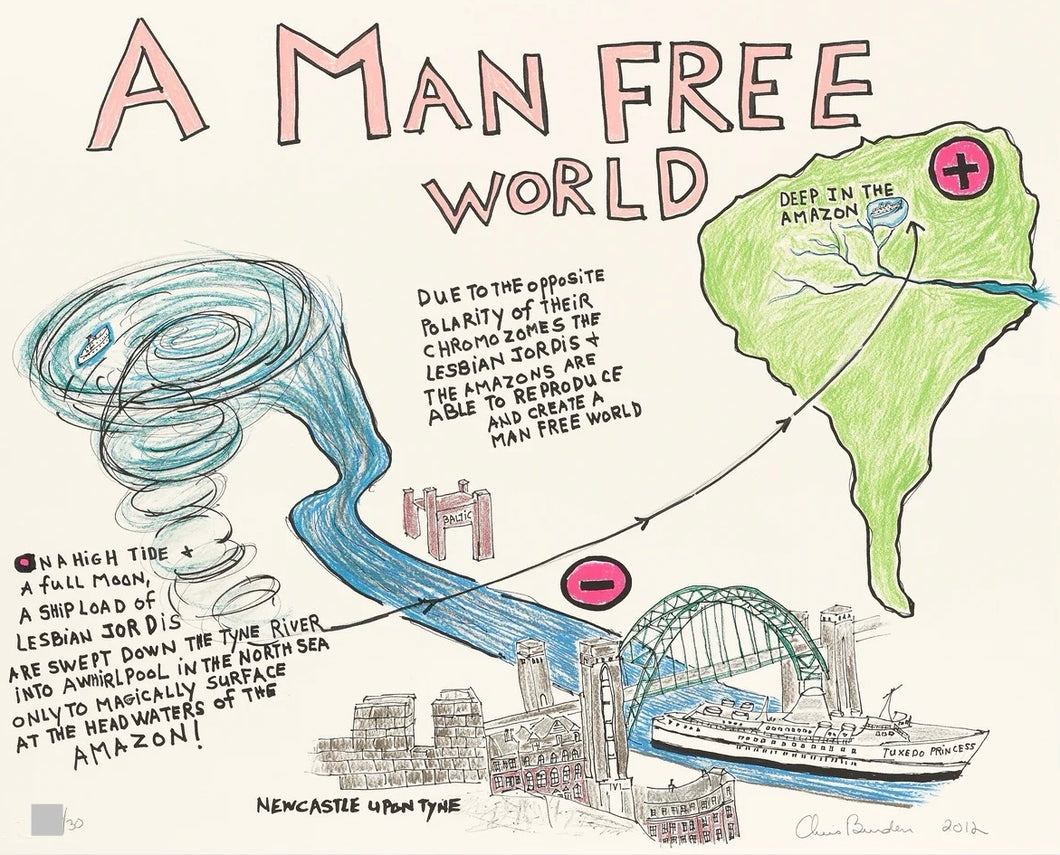 A MAN FREE
WORLD
DEEP IN THE
AMAZON
+
DUE TO THE OPPOSITE
POLARITY OF THEIR
CHROMOZOMES THE
LESBIAN JORDIS +
THE AMAZONS ARE
ABLE TO REPRODUCE
AND CREATE A
MAN FREE WORLD
BALTIC
-
ON A HIGH TIDE +
A FULL MOON,
A SHIP LOAD OF
LESBIAN JORDIS
ARE SWEPT DOWN THE TYNE RIVER
INTO A WHIRLPOOL IN THE NORTH SEA
ONLY TO MAGICALLY SURFACE
AT THE HEADWATERS OF THE
AMAZON!
TUXEDO PRINCESS
NEWCASTLE UPON TYNE
/30
Chris Burden 2012